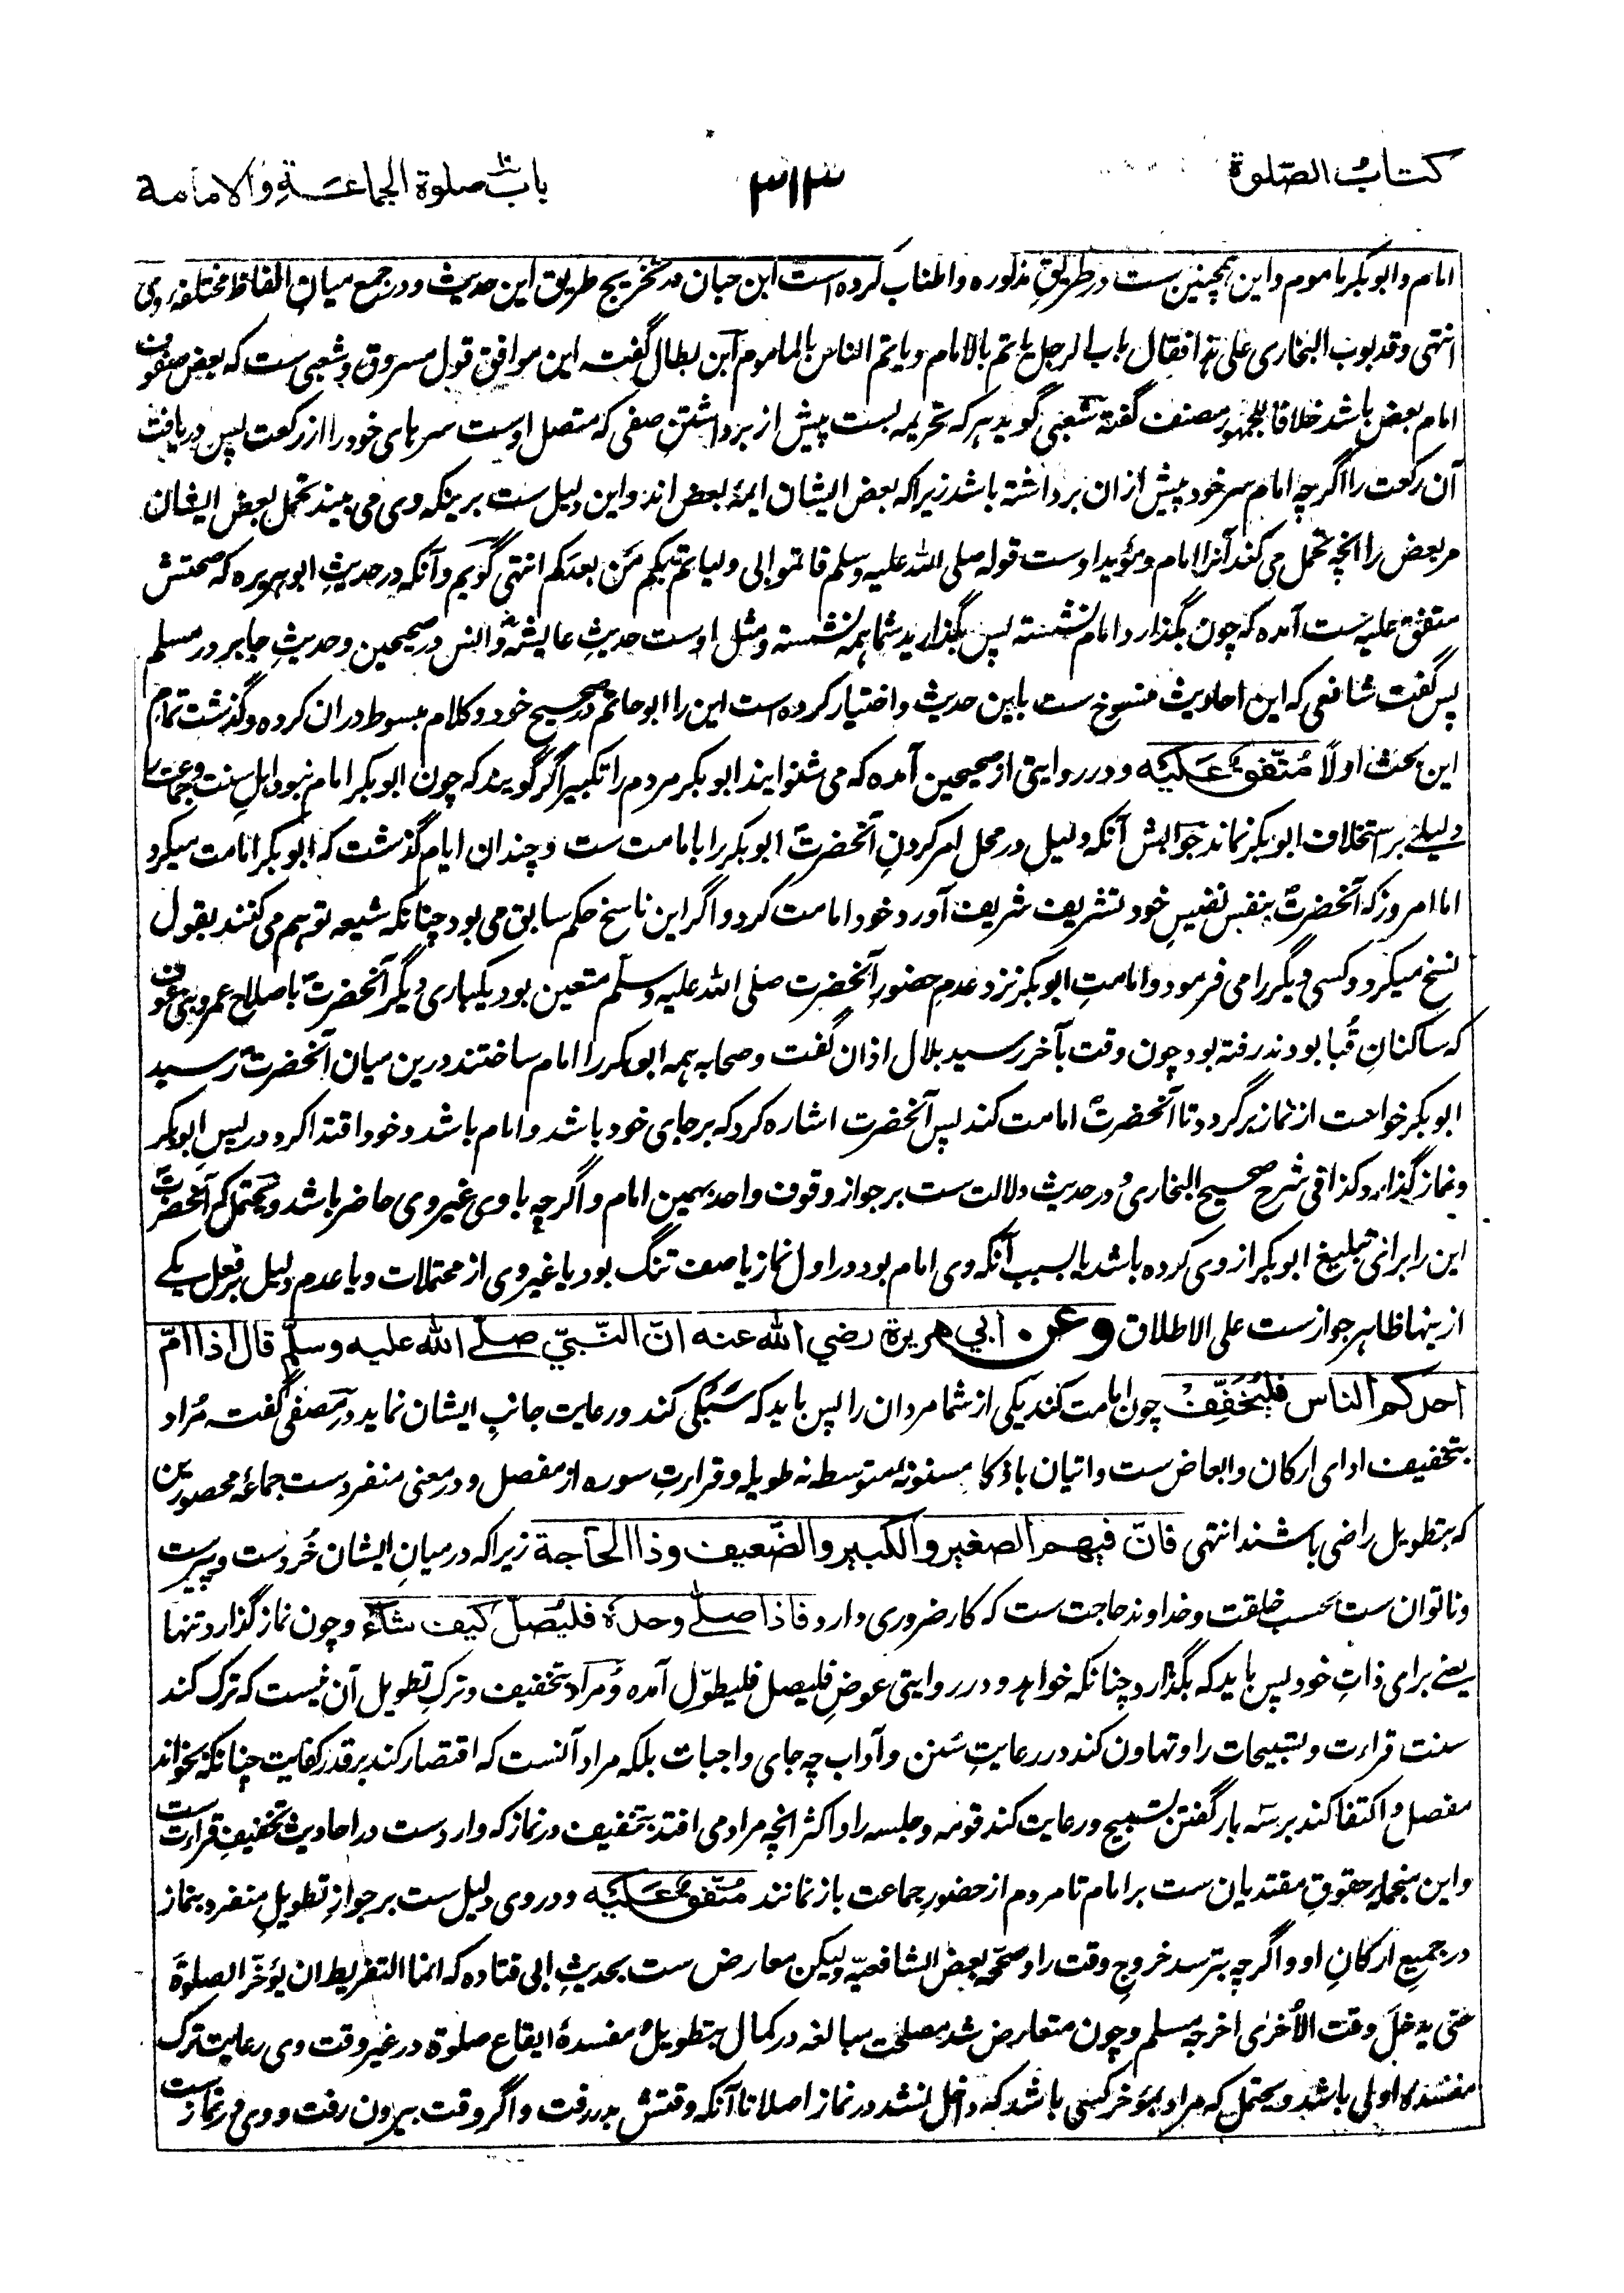 كتاب الصلوة
٣١٣
باب صلوة الجماعة والامامة
امام و ابوبکر ماموم و این همچنین ست در طریق مذکوره و اطناب کرده است ابن حبان در تخریج طریق این حدیث و در جمع میان الفاظ مختلفه وی
انتهی وقد بوب البخاری علی هذا فقال باب الرجل یاتم بالامام ویاتم الناس بالماموم ابن بطال گفته این موافق قول مسروق و شعبی ست که بعض صفوف
امام بعض باشد خلافا للجمهور مصنف گفته شعبی گوید هرکه تحریمه بست پیش از برداشتن صفی که متصل اوست سرهای خود را از رکعت پس دریافت
آن رکعت را اگرچه امام سر خود پیش ازان برداشته باشد زیراکه بعض ایشان ایمهٔ بعض اند و این دلیل ست برینکه وی می بیند تحمل بعض ایشان
مر بعض را انچه تحمل می کند آنرا امام و مؤید اوست قوله صلی الله علیه وسلم فاتموا بی ولیاتم بکم من بعدکم انتهی گویم و آنکه در حدیث ابوهریره که صحتش
متفق علیه ست آمده که چون بگذارد امام نشسته پس بگذارید شما همه نشسته و مثل اوست حدیث عایشه و انس در صحیحین و حدیث جابر در مسلم
پس گفت شافعی که این احادیث منسوخ ست باین حدیث و اختیار کرده است این را ابوحاتم در صحیح خود و کلام مبسوط دران کرده و گذشت تمام
این بحث اولاً متفق علیه و در روایتی از صحیحین آمده که می شنوایند ابوبکر مردم را تکبیر اگر گویند که چون ابوبکر امام نبود اهل سنت وجماعت را
دلیلے بر استخلاف ابوبکر نماند جوابش آنکه دلیل در محل امر کردن آنحضرت ابوبکر را بامامت ست و چندان ایام گذشت که ابوبکر امامت میکرد
اما امروز که آنحضرت بنفس نفیس خود تشریف شریف آورد خود امامت کرد و اگر این ناسخ حکم سابق می بود چنانکه شیعه توهم می کنند بقول
نسخ میکرد و کسی دیگر را می فرمود و امامت ابوبکر نزد عدم حضور آنحضرت صلی الله علیه وسلم متعین بود یکباری دیگر آنحضرت باصلاح عمرو بنی عوف
که ساکنان قُبا بودند رفته بود چون وقت بآخر رسید بلال اذان گفت و صحابه همه ابوبکر را امام ساختند درین میان آنحضرت رسید
ابوبکر خواست از نماز برگردد تا آنحضرت امامت کند پس آنحضرت اشاره کرد که برجای خود باشد و امام باشد و خود اقتدا کرد در پس ابوبکر
و نماز گذارد کذا فی شرح صحیح البخاری و در حدیث دلالت ست بر جواز وقوف واحد بیمین امام و اگرچه با وی غیر وی حاضر باشد ویحتمل که آنحضرت
این را برای تبلیغ ابوبکر از وی کرده باشد یا بسبب آنکه وی امام بود در اول نماز یا صف تنگ بود یا غیر وی از محتملات و با عدم دلیل بر فعل یکے
ازینها ظاهر جواز ست علی الاطلاق وعن ابي هريرة رضي الله عنه انّ النّبيّ صلّے الله عليه وسلّم قال اذا امّ
احدكم الناس فليُخَفِّفْ چون امامت کند یکی از شما مردان را پس باید که سَبُکی کند و رعایت جانب ایشان نماید در مصفی گفته مُراد
بتخفیف ادای ارکان و ابعاض ست و اتیان باذکار مسنونه متوسطه نه طویله و قراءت سوره از مفصل و در معنی منفرد ست جماعهٔ محصورین
که بتطویل راضی باشند انتهی فانّ فيهم الصغير والكبير والضّعيف وذا الحاجة زیراکه درمیان ایشان خُرد ست و پیر ست
و ناتوان ست بحسب خلقت و خداوند حاجت ست که کار ضروری دارد فاذا صلّے وحدَهٗ فليُصلِّ كيف شاءَ و چون نماز گذارد تنها
یعنے برای ذات خود پس باید که بگذارد چنانکه خواهد و در روایتی عوض فلیصل فلیطوّل آمده و مُراد بتخفیف و ترک تطویل آن نیست که ترک کند
سنت قراءت و تسبیحات را و تهاون کند در رعایت سُنن و آداب چه جای واجبات بلکه مراد آنست که اقتصار کند بر قدر کفایت چنانکه بخواند
مفصل و اکتفا کند بر سه بار گفتن تسبیح و رعایت کند قومه و جلسه را و اکثر انچه مراد می افتد بتخفیف در نماز که وارد ست در احادیث تخفیف قراءت ست
و این منجمله حقوق مقتدیان ست بر امام تا مردم از حضور جماعت باز نمانند متفق علیه و در وی دلیل ست بر جواز تطویل منفرد بنماز
در جمیع ارکان او و اگرچه بترسد خروج وقت را وصحّحه بعض الشافعیّه ولیکن معارض ست بحدیث ابی قتاده که انما التفریط ان یؤخّر الصلوة
حتی یدخل وقت الاُخرٰی اخرجه مسلم و چون متعارض شد مصلحت مبالغه در کمال بتطویل و مفسدهٔ ایقاع صلوة در غیر وقت وی رعایت ترک
مفسده اولی باشد ویحتمل که مراد بمؤخر کسی باشد که داخل نشد در نماز اصلا تا آنکه وقتش بدر رفت و اگر وقت بیرون رفت و وی در نماز ست